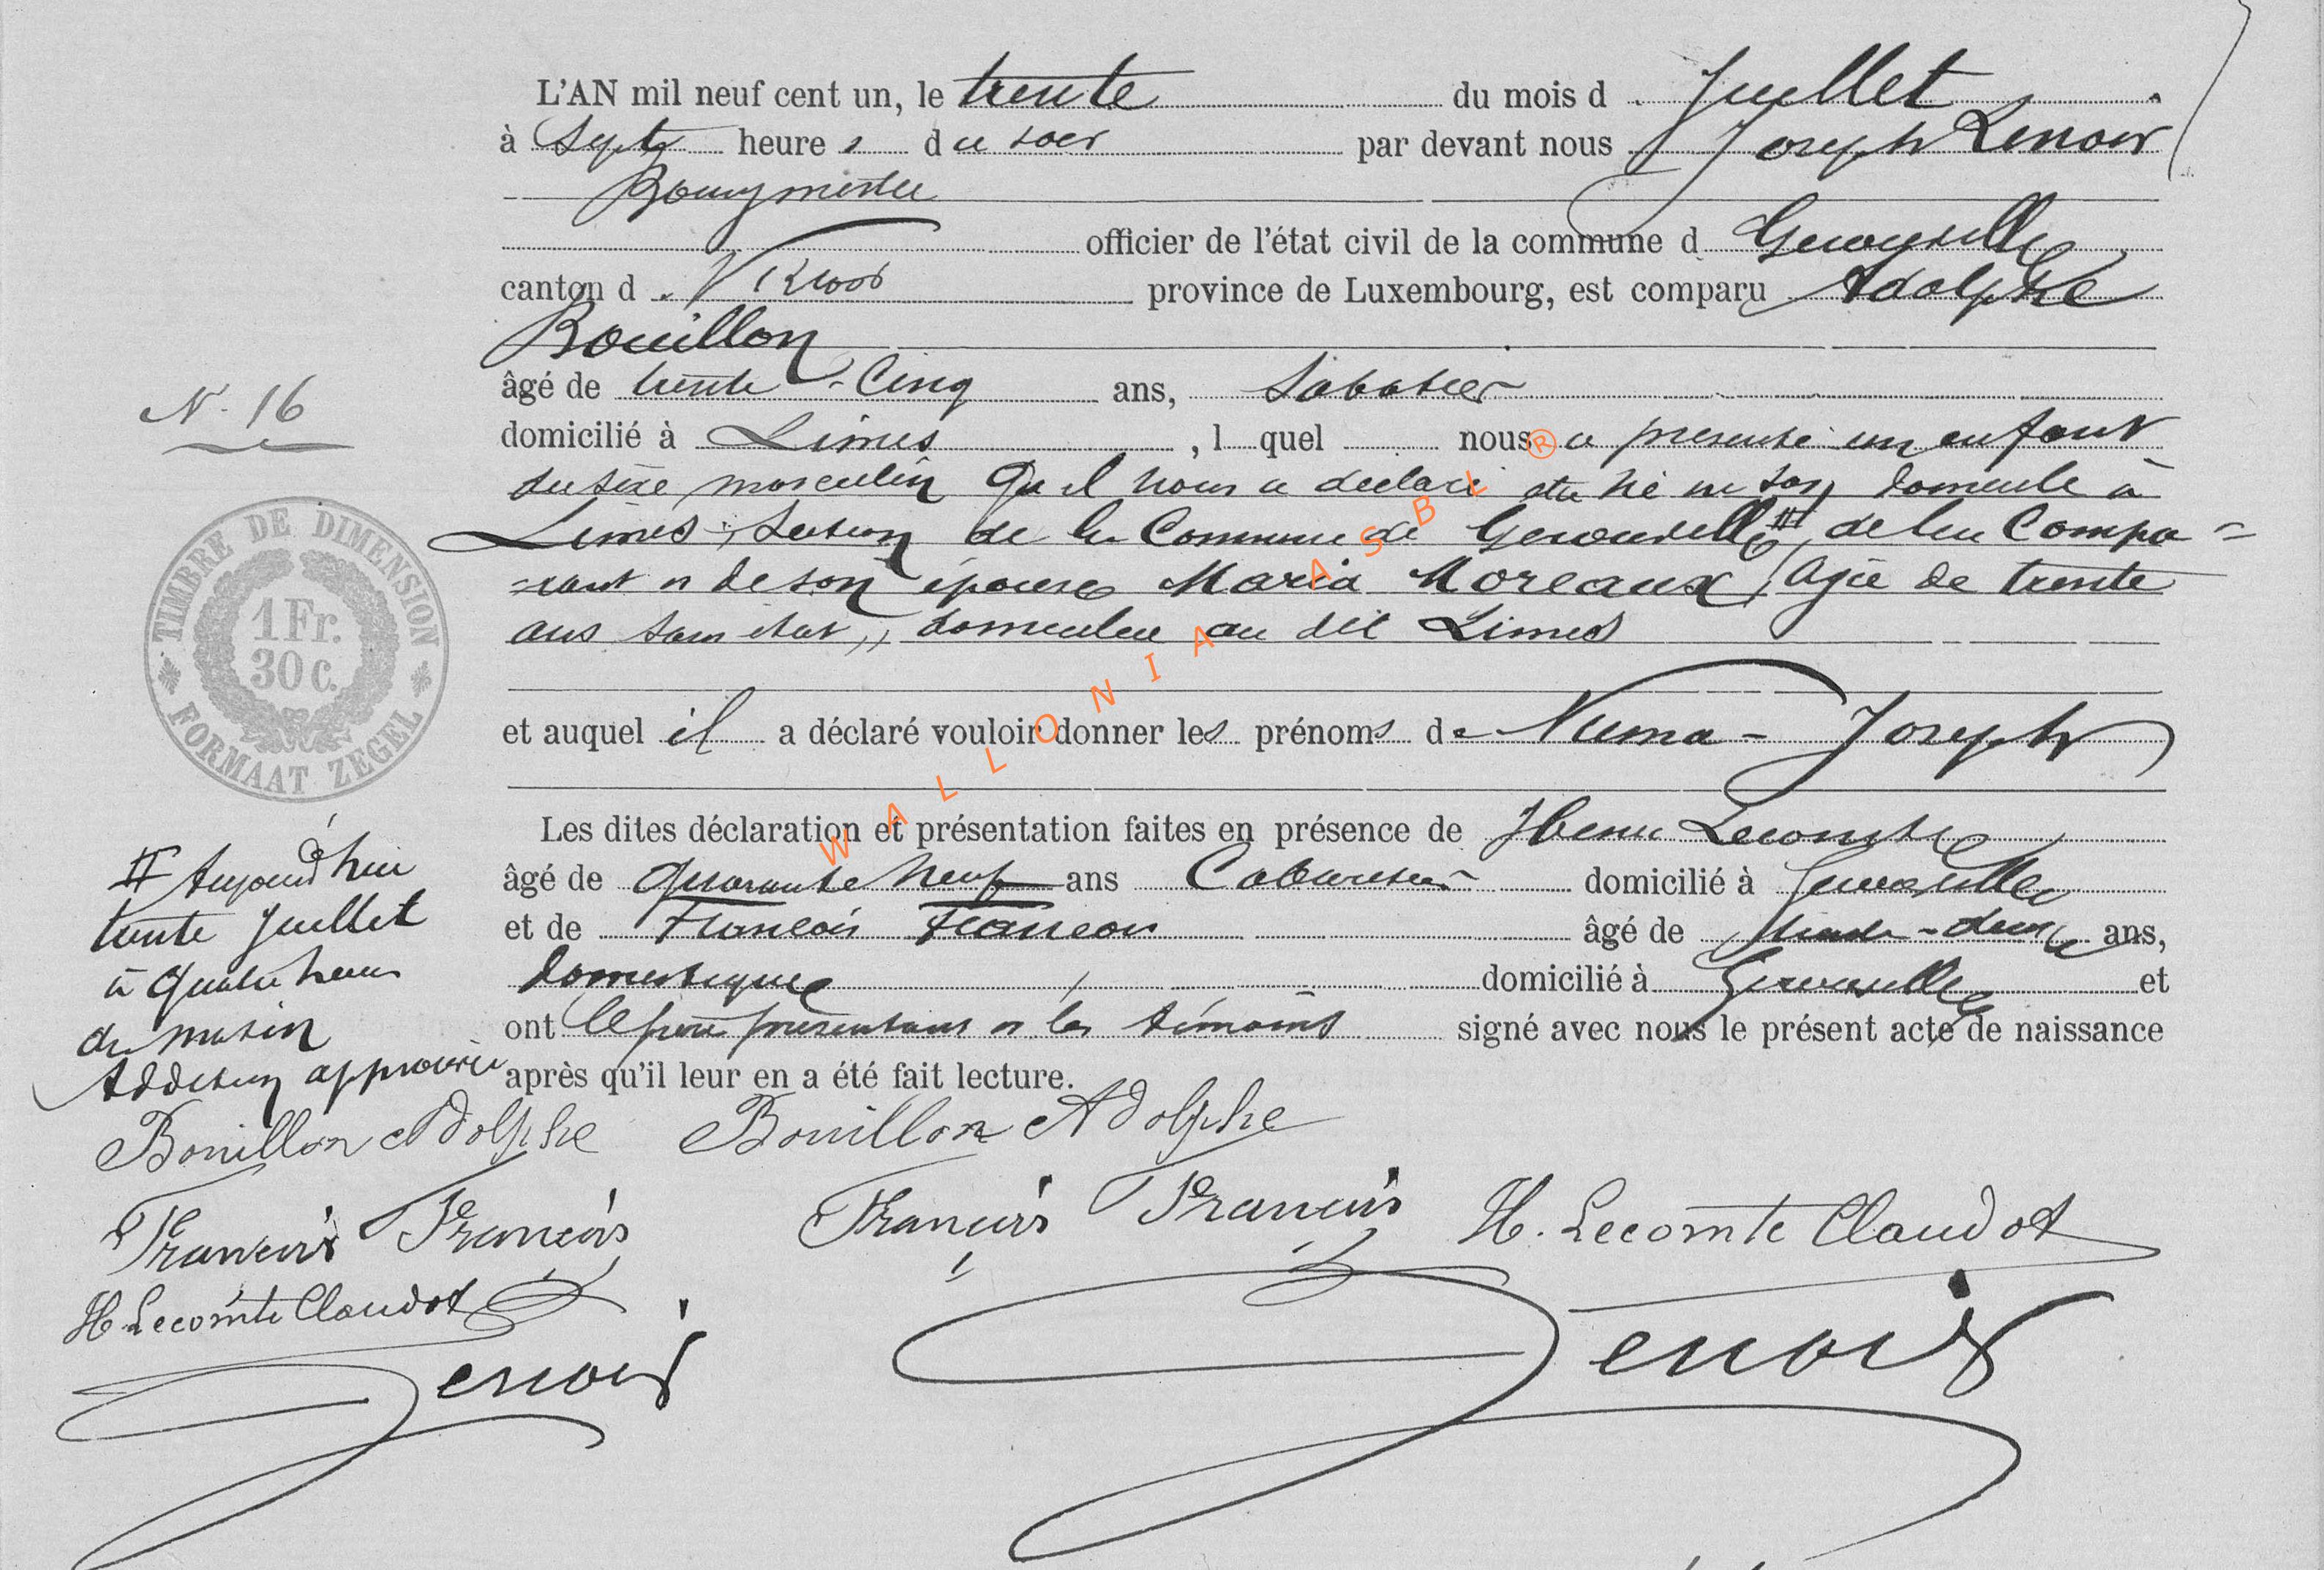 L'AN mil neuf cent un, le trente du mois d. Juillet
à Sept heure s du soir par devant nous Joseph Lenoir
Bourgmestre
officier de l'état civil de la commune d Gérouville
canton d. Virton province de Luxembourg, est comparu Adolphe
Bouillon
âgé de trente-Cinq ans, Sabotier
N. 16
domicilié à Limes , l quel nous a présenté un enfant
du sexe masculin Qu'il nous a déclaré être né en son domicile à
Limes, Section de la Commune de Gérouville # de lui Compa=
=rant et de son épouse Maria Moreaux, Agée de trente
ans sans état, domiciliée au dit Limes
TIMBRE DE DIMENSION
1 Fr.
30 c.
FORMAAT ZEGEL
et auquel il a déclaré vouloir donner les prénoms de Numa-Joseph
Les dites déclaration et présentation faites en présence de Henri Lecomte
âgé de Quarante Neuf ans Cabaretier domicilié à Gérouville
et de François François âgé de trente-deux ans,
domestique domicilié à Gérouville et
ont le père présentant et les témoins signé avec nous le présent acte de naissance
après qu'il leur en a été fait lecture.
# Aujourd'hui
trente Juillet
à Quatre heures
du matin
Addition approuvée
Bouillon Adolphe Bouillon Adolphe
François François François François H. Lecomte Claudot
H. Lecomte Claudot
Lenoir Lenoir
WALLONIA ASBL ®